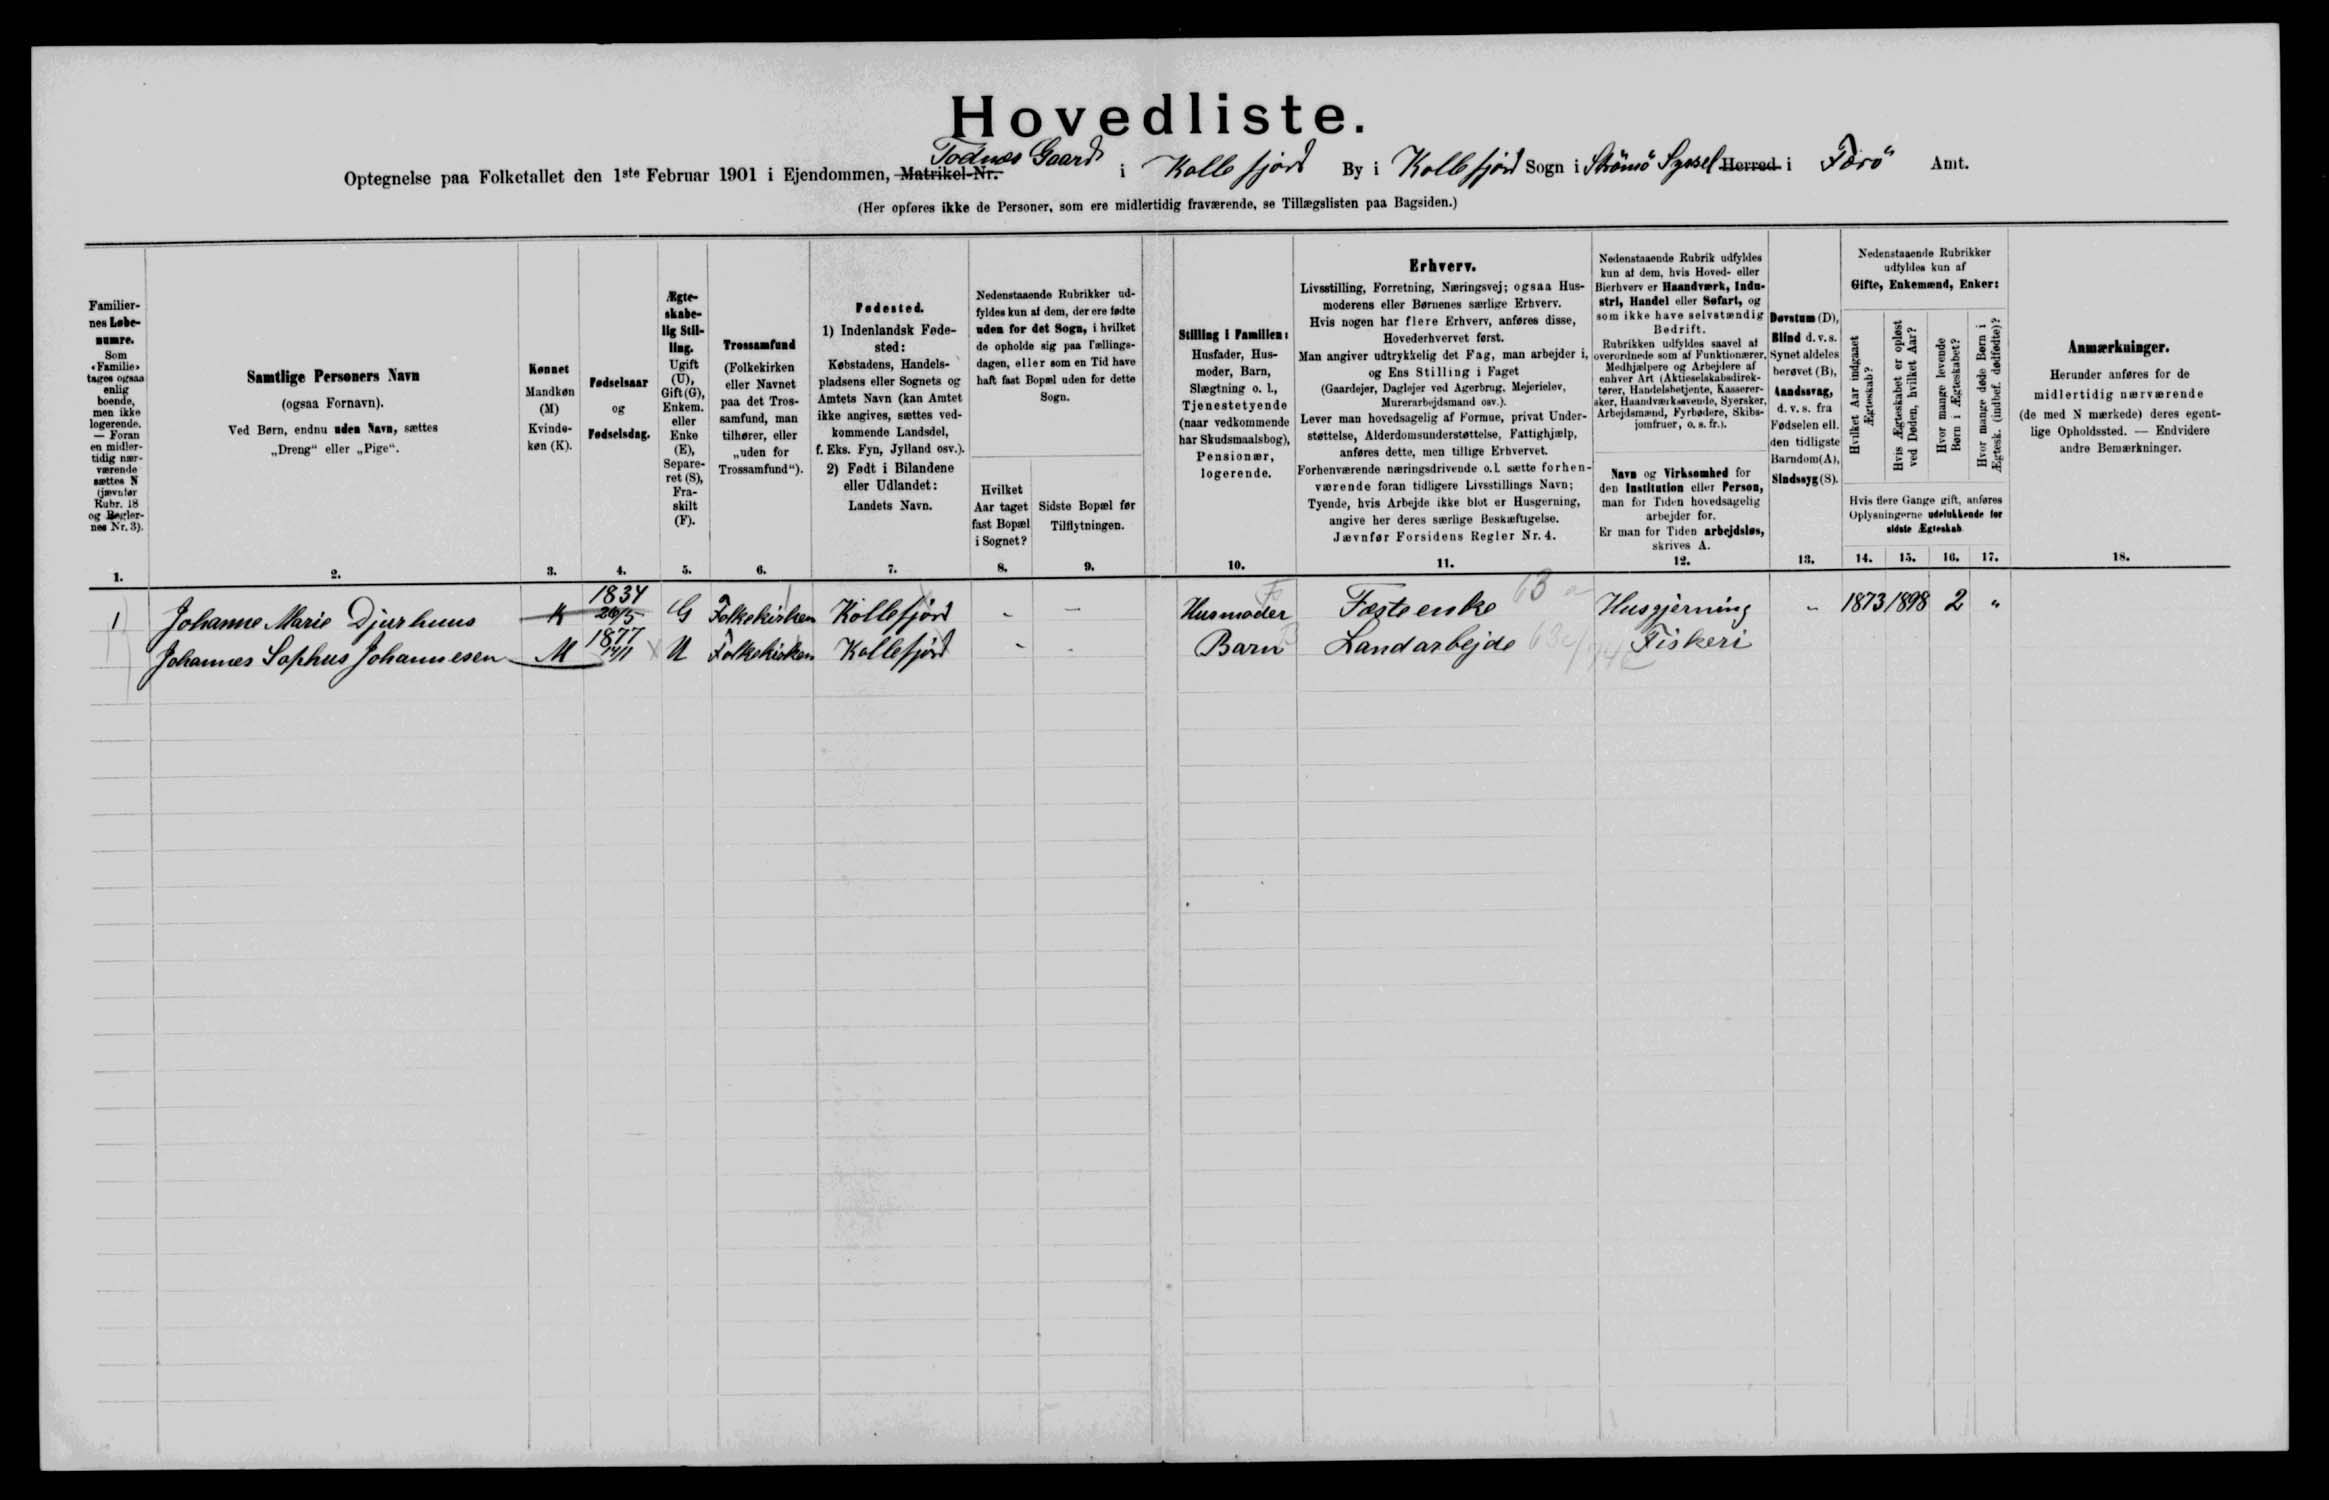 Hovedliste.
Optegnelse paa Folketallet den 1ste Februar 1901 i Ejendommen, Matrikel-Nr. Todnæs Gaard i Kollefjord By i Kollefjord Sogn i Strömö Syssel Herred i Færö Amt.
(Her opføres ikke de Personer, som ere midlertidig fraværende, se Tillægslisten paa Bagsiden.)
Familier-
nes Løbe-
numre.
Som
«Familie»
tages ogsaa
enlig
boende,
men ikke
logerende.
— Foran
en midler-
tidig nær-
værende
sættes N
(jævnfør
Rubr. 18
og Regler-
nes Nr. 3).
1.
Samtlige Personers Navn
(ogsaa Fornavn).
Ved Børn, endnu uden Navn, sættes
„Dreng“ eller „Pige“.
2.
Kønnet
Mandkøn
(M)
Kvinde-
køn (K).
3.
Fødselsaar
og
Fødselsdag.
4.
Ægte-
skabe-
lig Stil-
ling.
Ugift
(U),
Gift (G),
Enkem.
eller
Enke
(E),
Separe-
ret (S),
Fra-
skilt
(F).
5.
Trossamfund
(Folkekirken
eller Navnet
paa det Tros-
samfund, man
tilhører, eller
„uden for
Trossamfund“).
6.
Fødested.
1) Indenlandsk Føde-
sted:
Købstadens, Handels-
pladsens eller Sognets og
Amtets Navn (kan Amtet
ikke angives, sættes ved-
kommende Landsdel,
f. Eks. Fyn, Jylland osv.).
2) Født i Bilandene
eller Udlandet:
Landets Navn.
7.
Nedenstaaende Rubrikker ud-
fyldes kun af dem, der ere fødte
uden for det Sogn, i hvilket
de opholde sig paa Tællings-
dagen, eller som en Tid have
haft fast Bopæl uden for dette
Sogn.
Hvilket
Aar taget
fast Bopæl
i Sognet?
8.
Sidste Bopæl før
Tilflytningen.
9.
Stilling i Familien:
Husfader, Hus-
moder, Barn,
Slægtning o. l.,
Tjenestetyende
(naar vedkommende
har Skudsmaalsbog),
Pensionær,
logerende.
10.
Erhverv.
Livsstilling, Forretning, Næringsvej; ogsaa Hus-
moderens eller Børnenes særlige Erhverv.
Hvis nogen har flere Erhverv, anføres disse,
Hovederhvervet først.
Man angiver udtrykkelig det Fag, man arbejder i,
og Ens Stilling i Faget
(Gaardejer, Daglejer ved Agerbrug, Mejerielev,
Murerarbejdsmand osv.).
Lever man hovedsagelig af Formue, privat Under-
støttelse, Alderdomsunderstøttelse, Fattighjælp,
anføres dette, men tillige Erhvervet.
Forhenværende næringsdrivende o. l. sætte forhen-
værende foran tidligere Livsstillings Navn;
Tyende, hvis Arbejde ikke blot er Husgerning,
angive her deres særlige Beskæftigelse.
Jævnfør Forsidens Regler Nr. 4.
11.
Nedenstaaende Rubrik udfyldes
kun af dem, hvis Hoved- eller
Bierhverv er Haandværk, Indu-
stri, Handel eller Søfart, og
som ikke have selvstændig
Bedrift.
Rubrikken udfyldes saavel af
overordnede som af Funktionærer,
Medhjælpere og Arbejdere af
enhver Art (Aktieselskabsdirek-
tører, Handelsbetjente, Kasserer-
sker, Haandværkssvende, Syersker,
Arbejdsmænd, Fyrbødere, Skibs-
jomfruer, o. s. fr.).
Navn og Virksomhed for
den Institution eller Person,
man for Tiden hovedsagelig
arbejder for.
Er man for Tiden arbejdsløs,
skrives A.
12.
Døvstum (D),
Blind d. v. s.
Synet aldeles
berøvet (B),
Aandssvag,
d. v. s. fra
Fødselen ell.
den tidligste
Barndom (A),
Sindssyg (S).
13.
Nedenstaaende Rubrikker
udfyldes kun af
Gifte, Enkemænd, Enker:
Hvilket Aar indgaaet
Ægteskab?
Hvis Ægteskabet er opløst
ved Døden, hvilket Aar?
Hvor mange levende
Børn i Ægteskabet?
Hvor mange døde Børn i
Ægtesk. (indbef. dødfødte)?
Hvis flere Gange gift, anføres
Oplysningerne udelukkende for
sidste Ægteskab.
14. 15. 16. 17.
Anmærkninger.
Herunder anføres for de
midlertidig nærværende
(de med N mærkede) deres egent-
lige Opholdssted. — Endvidere
andre Bemærkninger.
18.
1 Johanne Marie Djurhuus K 1834 26/5 G Folkekirken Kollefjord - - Husmoder Fæsteenke Husgjerning - 1873 1898 2 "
Johannes Sophus Johannesen M 1877 U Folkekirken Kollefjord - - Barn Landarbejde Fiskeri